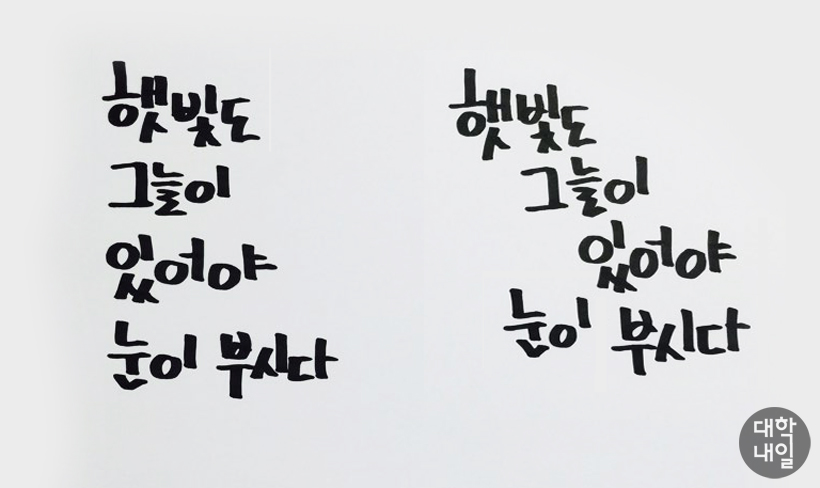 햇빛도
그늘이
있어야
눈이 부시다
햇빛도
그늘이
있어야
눈이 부시다
대학
내일